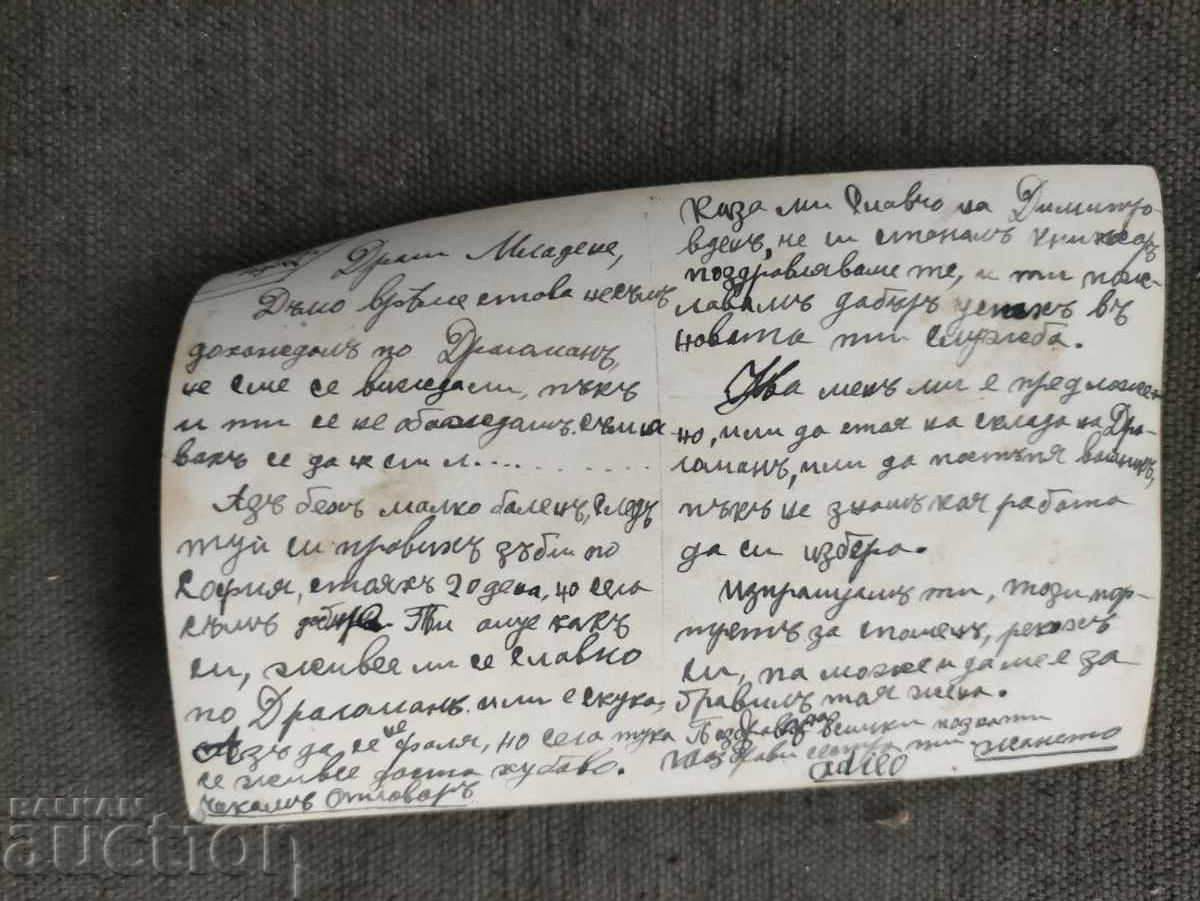 Драги Младене,
Дълго врѣме стова не съмъ
дохождалъ по Драгоманъ,
не сме се виждали, пъкъ
и ти се не обаждашъ съмня
вамъ се да не си л..........
Азъ бехъ малко боленъ, следъ
туй си правихъ зъби по
София, стояхъ 20 дена, но сега
съмъ добре. Ти още какъ
си, живее ли се славно
по Драгоманъ или е скука,
Азъ да се не фаля, но сега тука
се живее доста хубаво.
Чакамъ отговоръ
Каза ми Славчо на Димитро-
вденъ, че си станалъ книжаръ
поздравляваме те, и ти поже-
лавамъ добъръ успехъ въ
новата ти служба.
На менъ ми е предложе-
но, или да стоя на склада на Дра-
гоманъ, или да постъпя
пъкъ не знамъ коя работа
да си избера.
Изпращамъ ти, този пор-
третъ за споменъ, рекохъ
си, па може и да ме е за
бравилъ тоя жена.
Поздрави на всички познати
поздрави сестра ти
adieo
BALKAN
auction